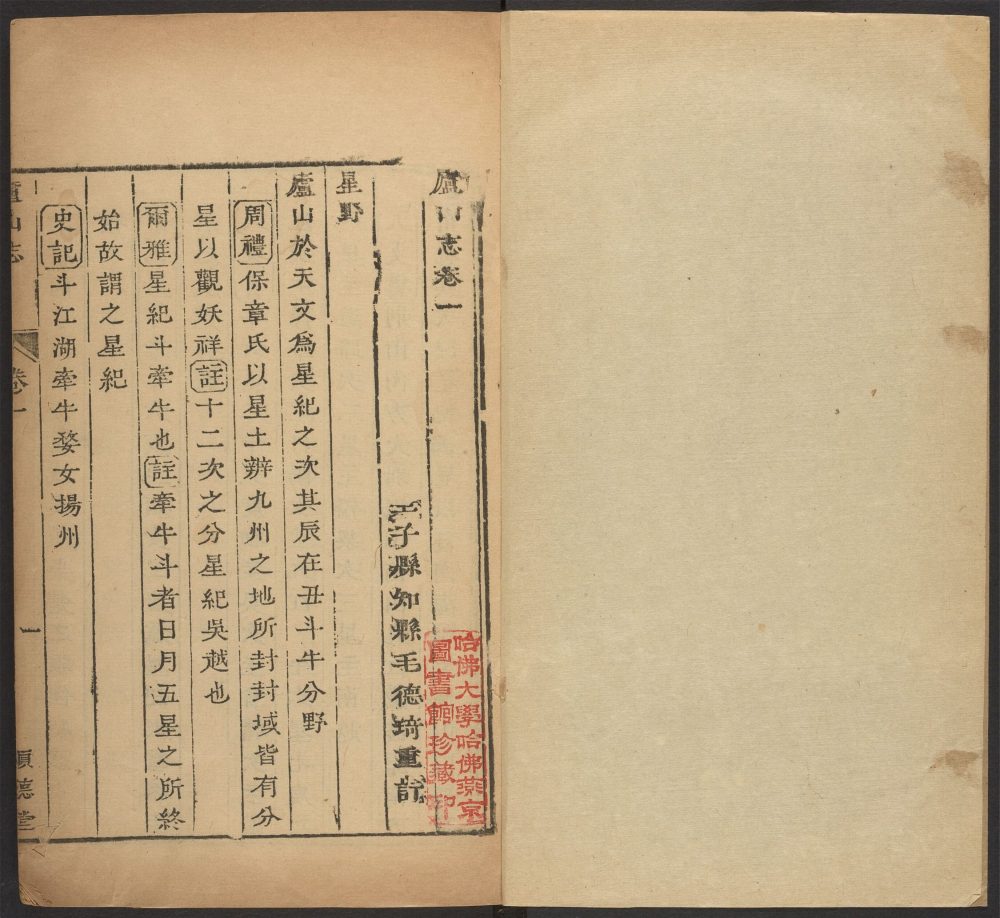 廬山志卷一
星子縣知縣毛德琦重訂
星野
廬山於天文為星紀之次其辰在丑斗牛分野
周禮保章氏以星土辨九州之地所封封域皆有分
星以觀妖祥註十二次之分星紀吳越也
爾雅星紀斗牽牛也註牽牛斗者日月五星之所終
始故謂之星紀
史記斗江湖牽牛婺女揚州
廬山志
卷一
一
順德堂
哈佛大學哈佛燕京
圖書館珍藏印